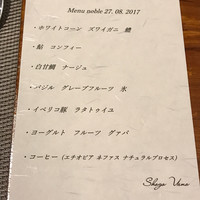 Menu noble 27. 08. 2017
・ホワイトコーン ズワイガニ 鱧
・鮎 コンフィー
・白甘鯛 ナージュ
・バジル グレープフルーツ 氷
・イベリコ豚 ラタトゥイユ
・ヨーグルト フルーツ グァバ
・コーヒー (エチオピア ネファス ナチュラルプロセス)